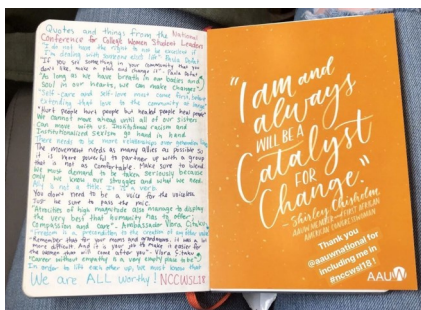 Quotes and things from the National
Conference for College Women Student Leaders
"I do not have the right to not be excellent if
I'm dealing with someone else's life"
If you see something in your community that you
don't like, make a plan and change it"
"As long as we have breath in our bodies and
Soul in our hearts, we can make changes"
"Self-care and self-love must come first before
Extending that love to the community or people"
"Hurt people hurt people but healed people heal people"
We cannot move among until all of our sisters
Can move with us. Institutional racism and
Institutionalized sexism go hand in hand
The movement needs as many allies as possible so
it is more powerful to partner up with a group
that is not as comfortable. Make sure to blend
We must demand to be taken seriously because
Only we know our struggles and what we need.
Ally is not a title. It is a verb
You don't need to be a voice for the voiceless
Just be sure to pass the mic.
"Atrocities of high magnitude also manage to display
the very best that humanity has to offer:
Compassion and care" - Ambassador
"Remember that for your moms and grandmoms, it was a lot
more difficult. And it is your job to make it easier for
the women that will come after you"
"Career without empathy is a very empty place to be"
In order to lift each other up, we must know that
We are ALL worthy! NCCWSL18
"I am and
always
WILL BE A
Catalyst
FOR
Change."
- Shirley Chisholm
AAUW MEMBER and FIRST AFRICAN
AMERICAN CONGRESSWOMAN
Thank you
@aauwnational for
including me in
#nccwsl18 !
AAUW